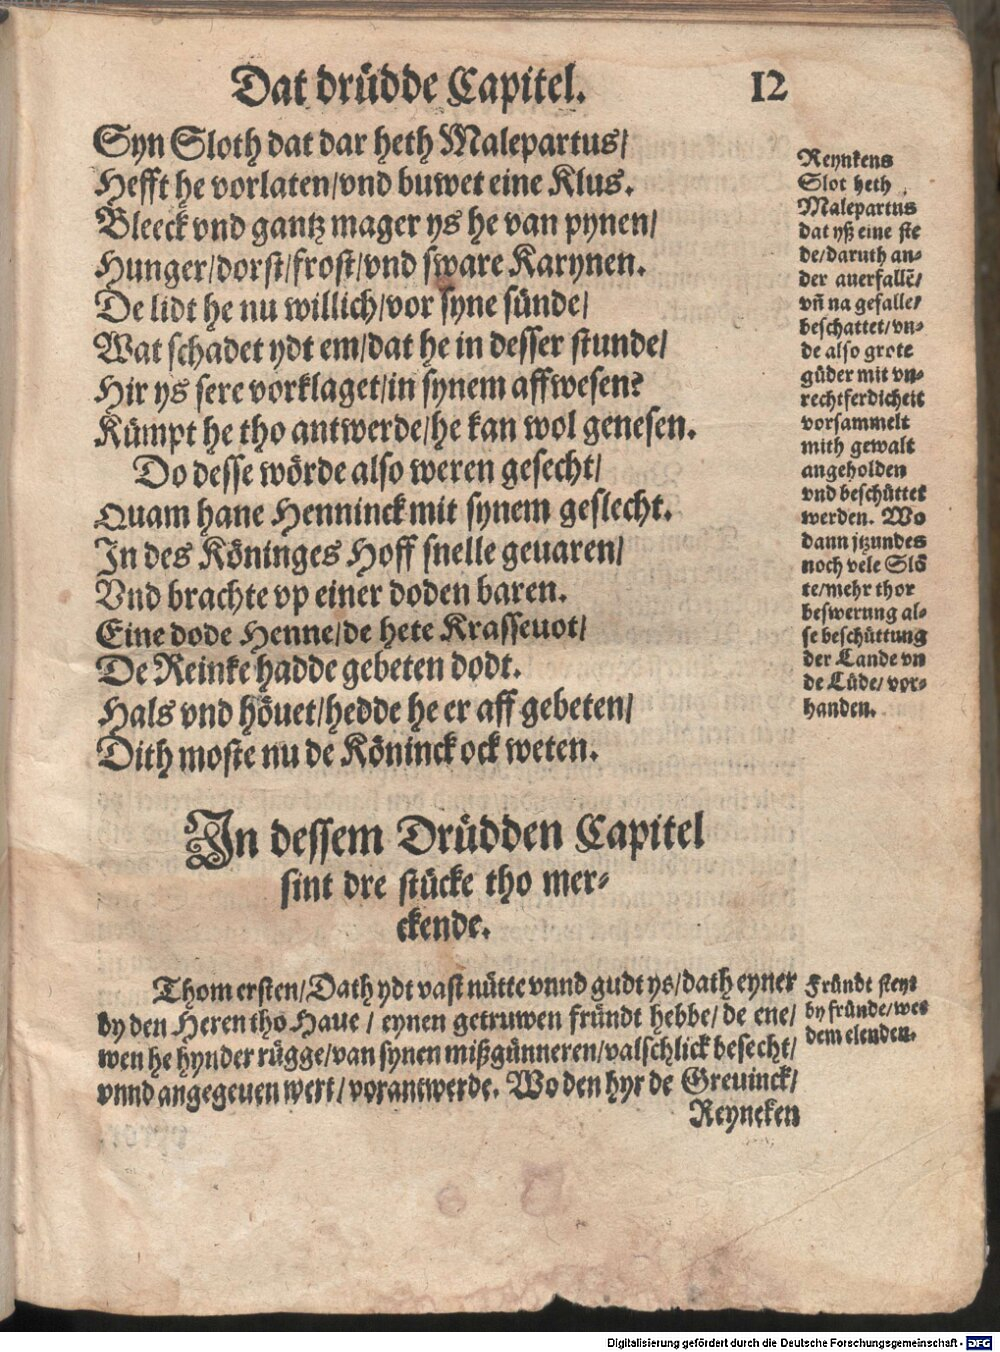 Dat drüdde Capitel. 12
Syn Sloth dat dar heth Malepartus/
Hefft he vorlaten/vnd buwet eine Klus.
Bleeck vnd gantz mager ys he van pynen/
Hunger/dorst/frost/vnd sware Karynen.
De lidt he nu willich/vor syne sünde/
Wat schadet ydt em/dat he in desser stunde/
Hir ys sere vorklaget/in synem affwesen?
Kümpt he tho antwerde/he kan wol genesen.
Do desse wörde also weren gesecht/
Quam hane Henninck mit synem geslecht.
In des Köninges Hoff snelle geuaren/
Vnd brachte vp einer doden baren.
Eine dode Henne/de hete Krasseuot/
De Reinke hadde gebeten dodt.
Hals vnd höuet/hedde he er aff gebeten/
Dith moste nu de Köninck ock weten.
Reynkens
Slot heth
Malepartus
dat yß eine ste
de/daruth an-
der auerfallē/
vn̄ na gefalle/
beschattet/vn-
de also grote
güder mit vn-
rechtferdicheit
vorsammelt
mith gewalt
angeholden
vnd beschüttet
werden. Wo
dann jtzundes
noch vele Slö
te/mehr thor
beswerung al-
se beschüttung
der Lande vn
de Lüde/vor-
handen.
In dessem Drüdden Capitel
sint dre stücke tho mer-
ckende.
Thom ersten/Dath ydt vast nütte vnnd gudt ys/dath eyner
by den Heren tho Haue/eynen getruwen fründt hebbe/de ene/
wen he hynder rügge/van synen mißgünneren/valschlick besecht/
vnnd angegeuen wert/vorantwerde. Wo den hyr de Greuinck/
Reyneken
Fründt steyt
by fründe/wee
dem elenden.
Digitalisierung gefördert durch die Deutsche Forschungsgemeinschaft - DFG